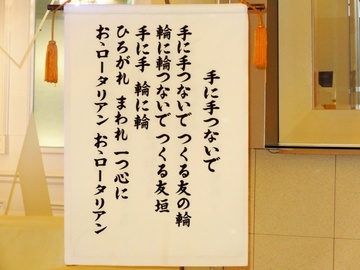 手に手つないで
手に手つないで つくる友の輪
輪に輪つないで つくる友垣
手に手 輪に輪
ひろがれ まわれ 一つ心に
おゝロータリアン おゝロータリアン